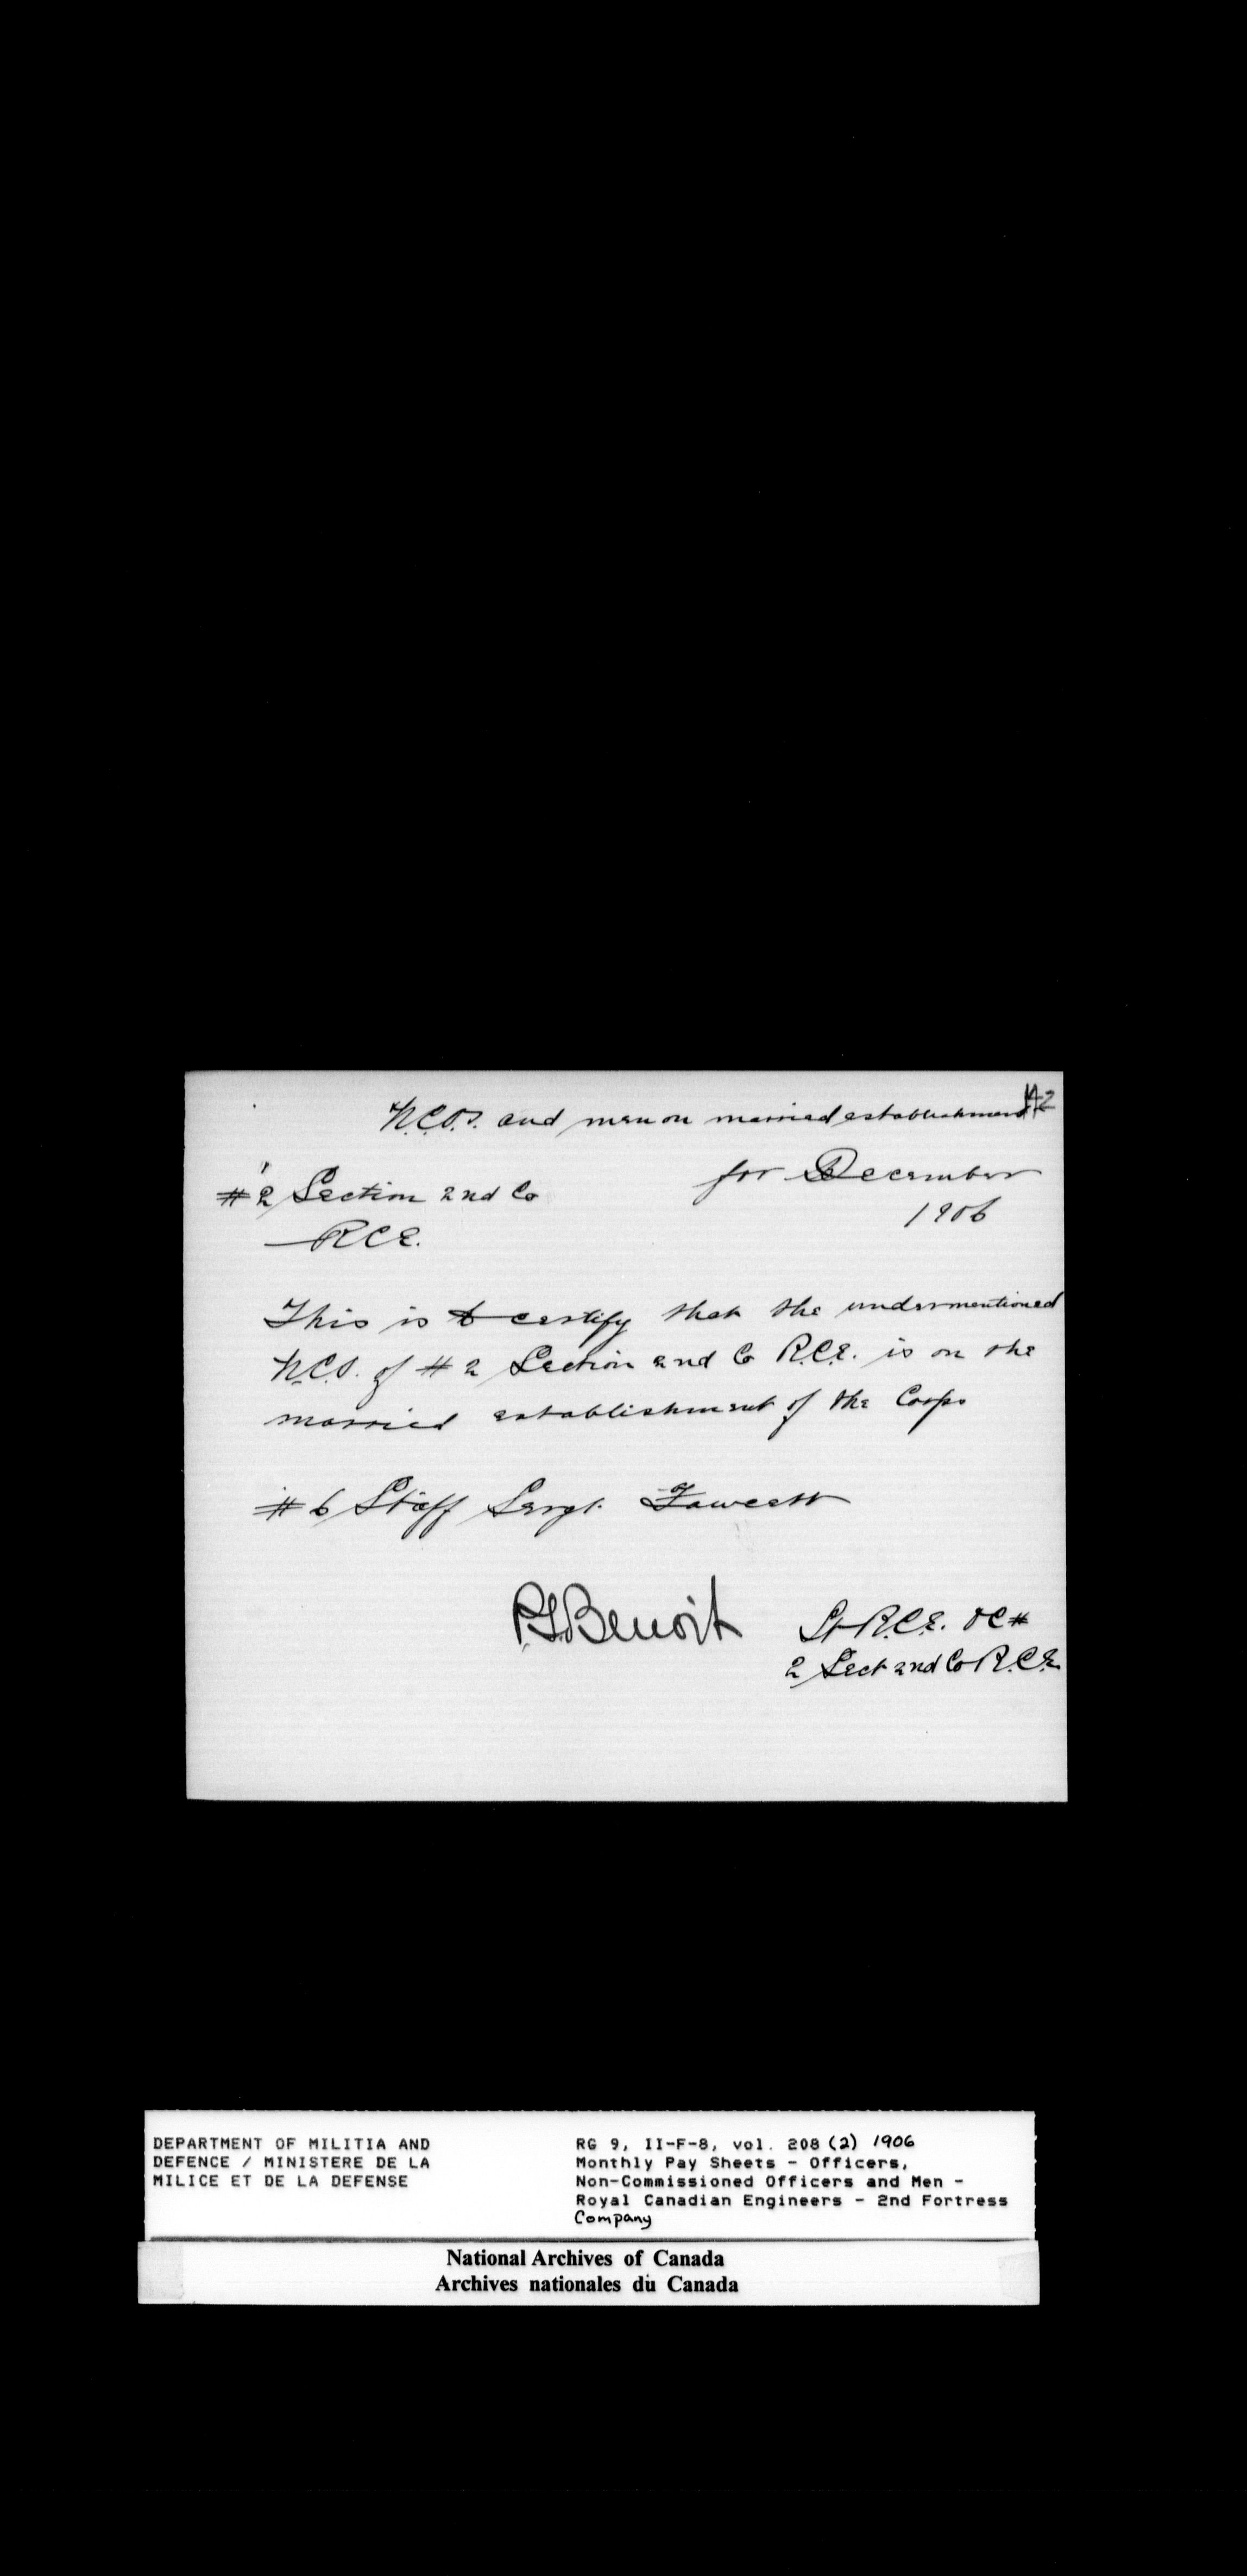 42
N.C.O.s. and men on married establishment
for December
1906
#2 Section 2nd Co
R.C.E.
This is to certify that the undermentioned
N.C.O. of #2 Section 2nd Co R.C.E. is on the
married establishment of the Corps
#6 Staff Sergt. Fawcett
P.S. Benoit Lt R.C.E. OC #
2 Sect 2nd Co R.C.E.
DEPARTMENT OF MILITIA AND
DEFENCE / MINISTERE DE LA
MILICE ET DE LA DEFENSE
RG 9, II-F-8, vol. 208 (2) 1906
Monthly Pay Sheets - Officers,
Non-Commissioned Officers and Men -
Royal Canadian Engineers - 2nd Fortress
Company
National Archives of Canada
Archives nationales du Canada